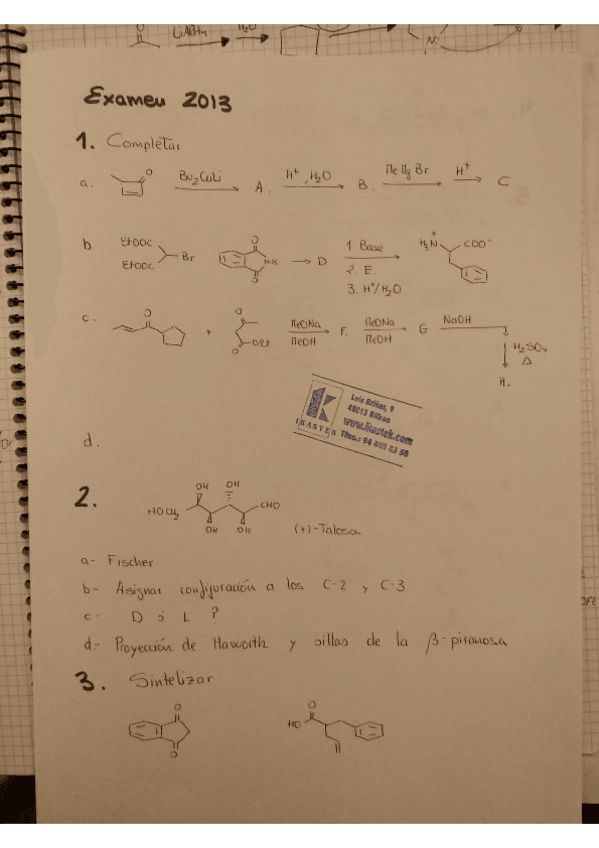 LiAlH4 H2O
N
Examen 2013
1. Completar
a. O Bu2CuLi A. H+, H2O B. MeMgBr H+ C
b. EtOOC EtOOC Br O NH O D 1. Base 2. E. 3. H+/H2O H3N+ COO-
c. O + O O OEt MeONa MeOH F. MeONa MeOH G NaOH H2SO4 Δ H.
Luis Briñas, 9
48013 Bilbao
www.ikastek.com
Tfno.: 94 442 43 50
IKASTEK
d.
2. HOCH2 OH OH OH OH CHO (+)-Talosa
a- Fischer
b- Asignar configuración a los C-2 y C-3
c- D ó L ?
d- Proyección de Haworth y sillas de la β-piranosa
3. Sintetizar
O O HO O